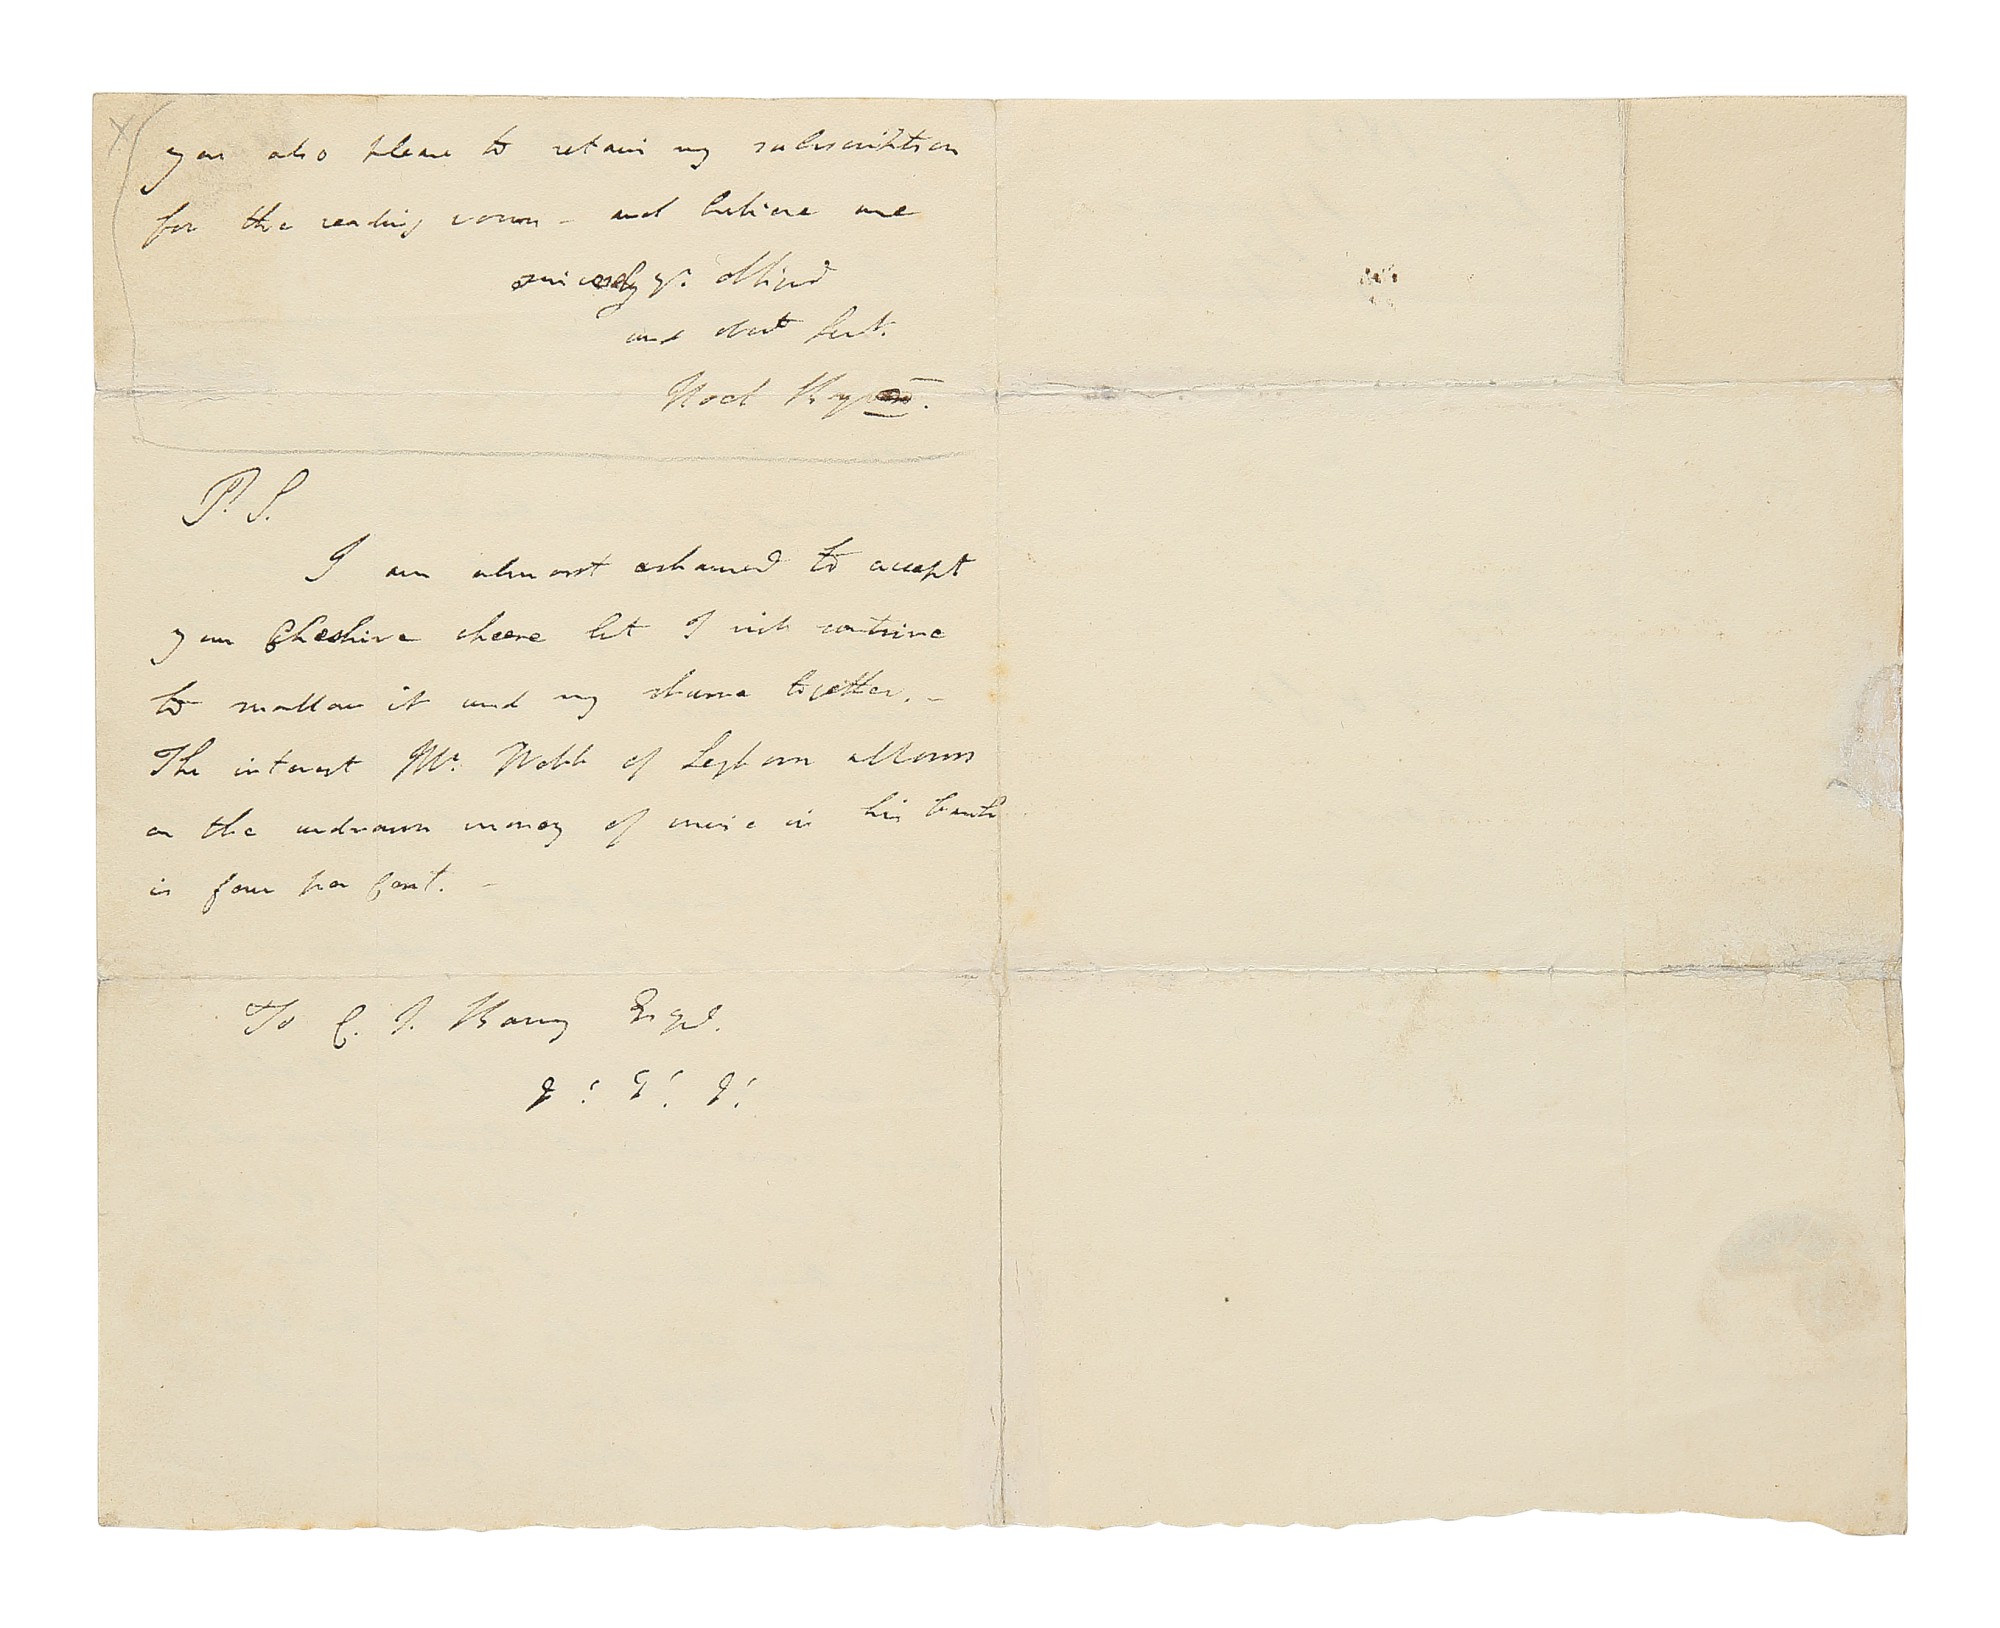 you also please to retain my subscription
for the reading room – and believe me
sincerely yr. obliged
and obedt Sert.
Noel Byron.
P. S.
I am almost ashamed to accept
your Cheshire cheese but I will contrive
to swallow it and my shame together. –
The interest Mr. Webb of Leghorn allows
on the undrawn money of mine in his bank
is four per Cent. –
To C. F. Barry Esqre.
&c &c &c